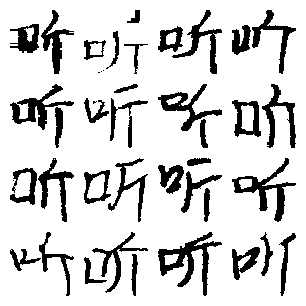 听 听 听 听
听 听 听 听
听 听 听 听
听 听 听 听